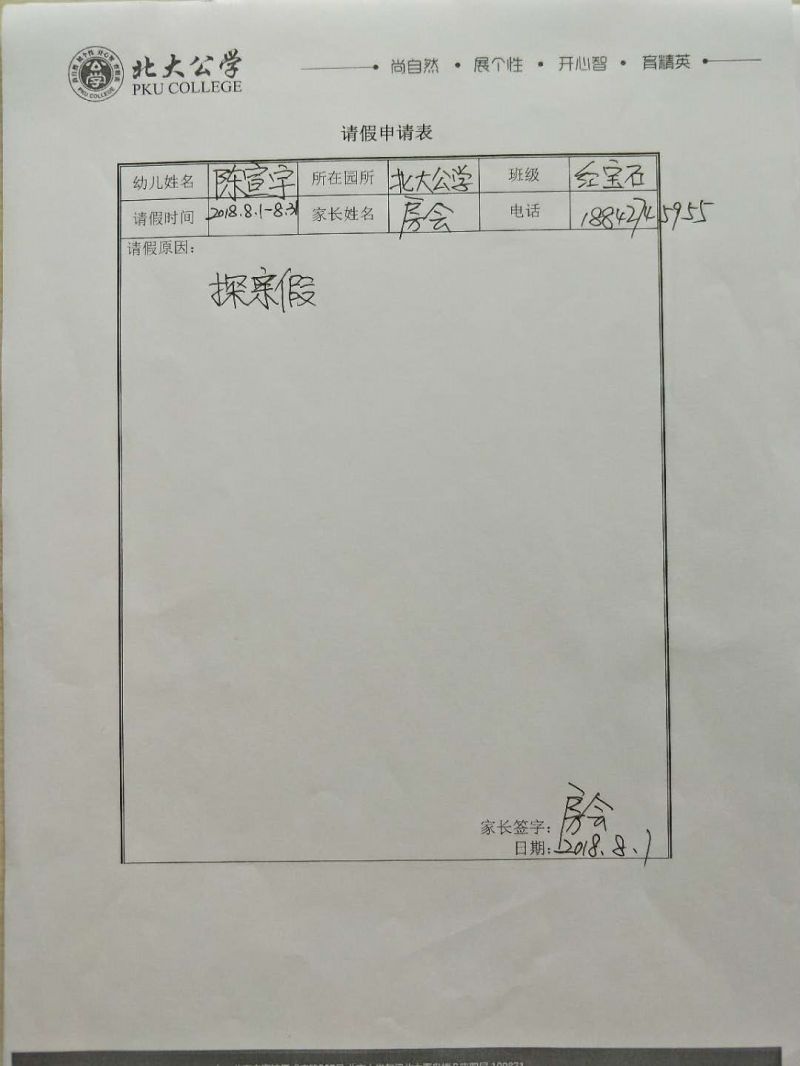 北大公学
PKU COLLEGE
尚自然 • 展个性 • 开心智 • 育精英
请假申请表
幼儿姓名 陈宣宇 所在园所 北大公学 班级 红宝石
请假时间 2018.8.1-8.31 家长姓名 房会 电话 18842745955
请假原因：
探亲假
家长签字：房会
日期：2018.8.1